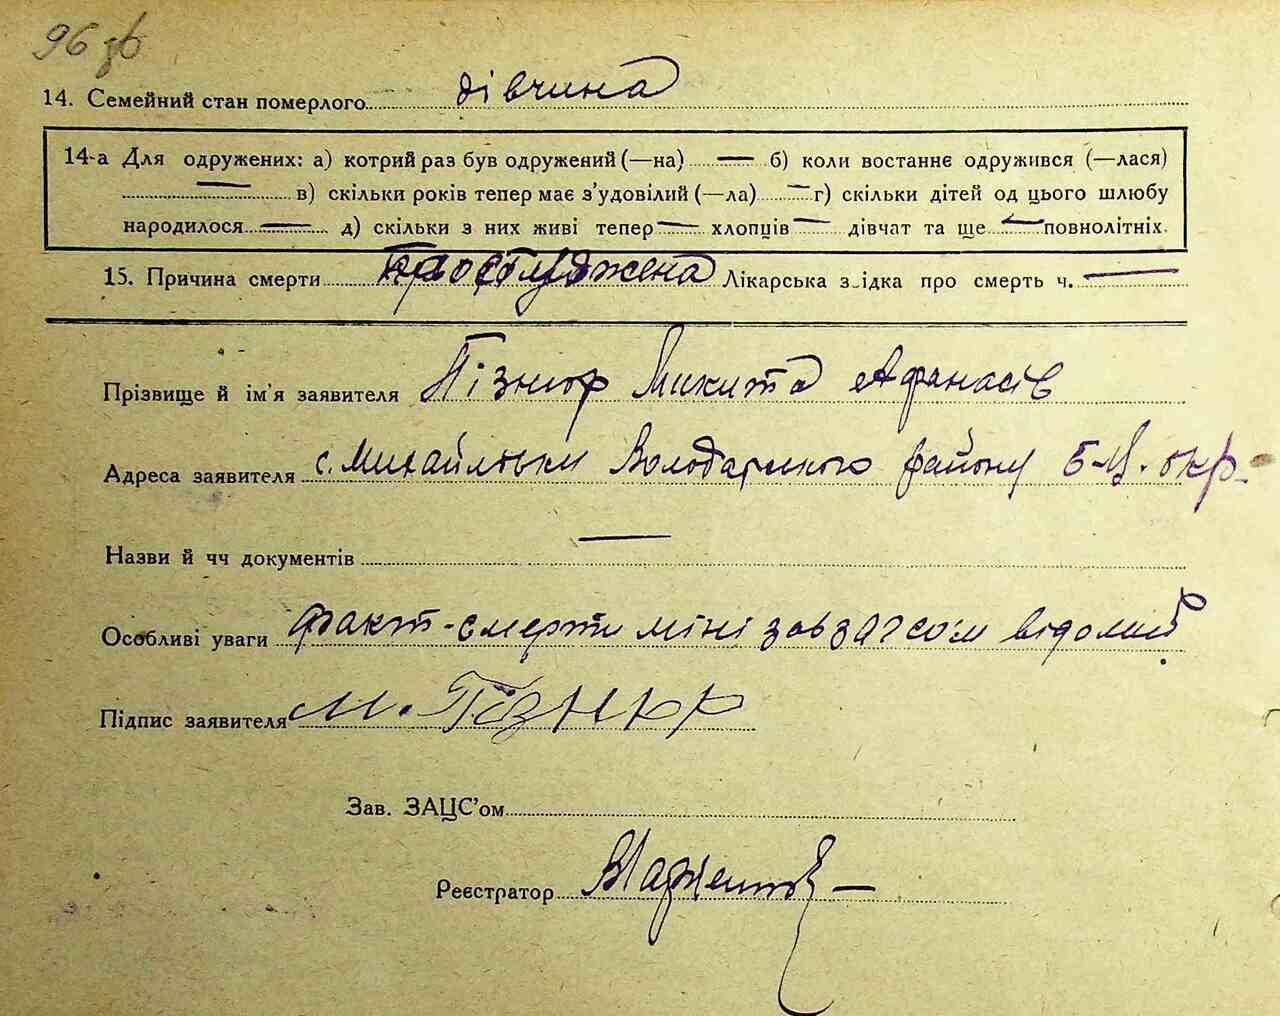 96 зв
14. Семейний стан померлого дівчина
14-а Для одружених: а) котрий раз був одружений (—на) — б) коли востаннє одружився (—лася)
— в) скільки років тепер має з'удовілий (—ла) — г) скільки дітей од цього шлюбу
народилося — д) скільки з них живі тепер — хлопців — дівчат та ще — повнолітніх.
15. Причина смерти Лікарська з ідка про смерть ч. —
Прізвище й ім'я заявителя Пізнюр Микита Афанасів
Адреса заявителя с. Михайлівки Володарського району Б-Ц. окр.
Назви й чч документів —
Особливі уваги факт-смерти міні завзагсо'м відомий
Підпис заявителя М. Пізнюр
Зав. ЗАЦС'ом
Реєстратор